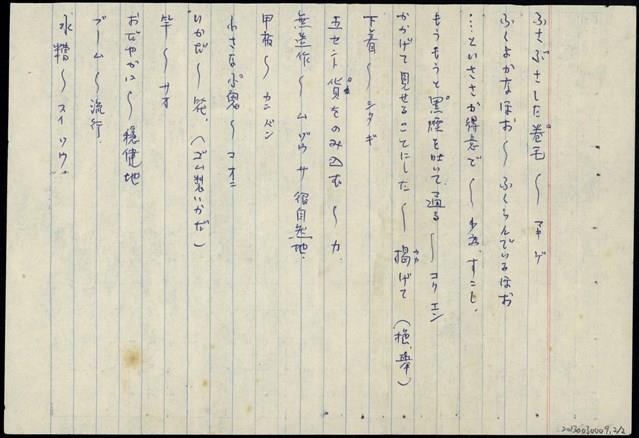 ふさふさした巻毛〜マキゲ
ふくよかなほお〜ふくらんでいるほお
…といささか得意で〜わずか.すこし.
もうもうと黒煙を吐いて通る〜コクエン
かかげて見せることにした〜掲げて(挙)
下着〜シタギ
五セント貨をのみ込む〜カ.
無造作〜ムゾウサ 很自然地.
甲板〜カンパン
小さな小鬼〜コオニ
いかだ〜筏.(ゴム製いかだ)
竿〜サオ
おだやかに〜穏健地
ブーム〜流行.
水槽〜スイソウ.
2013030009.2/2